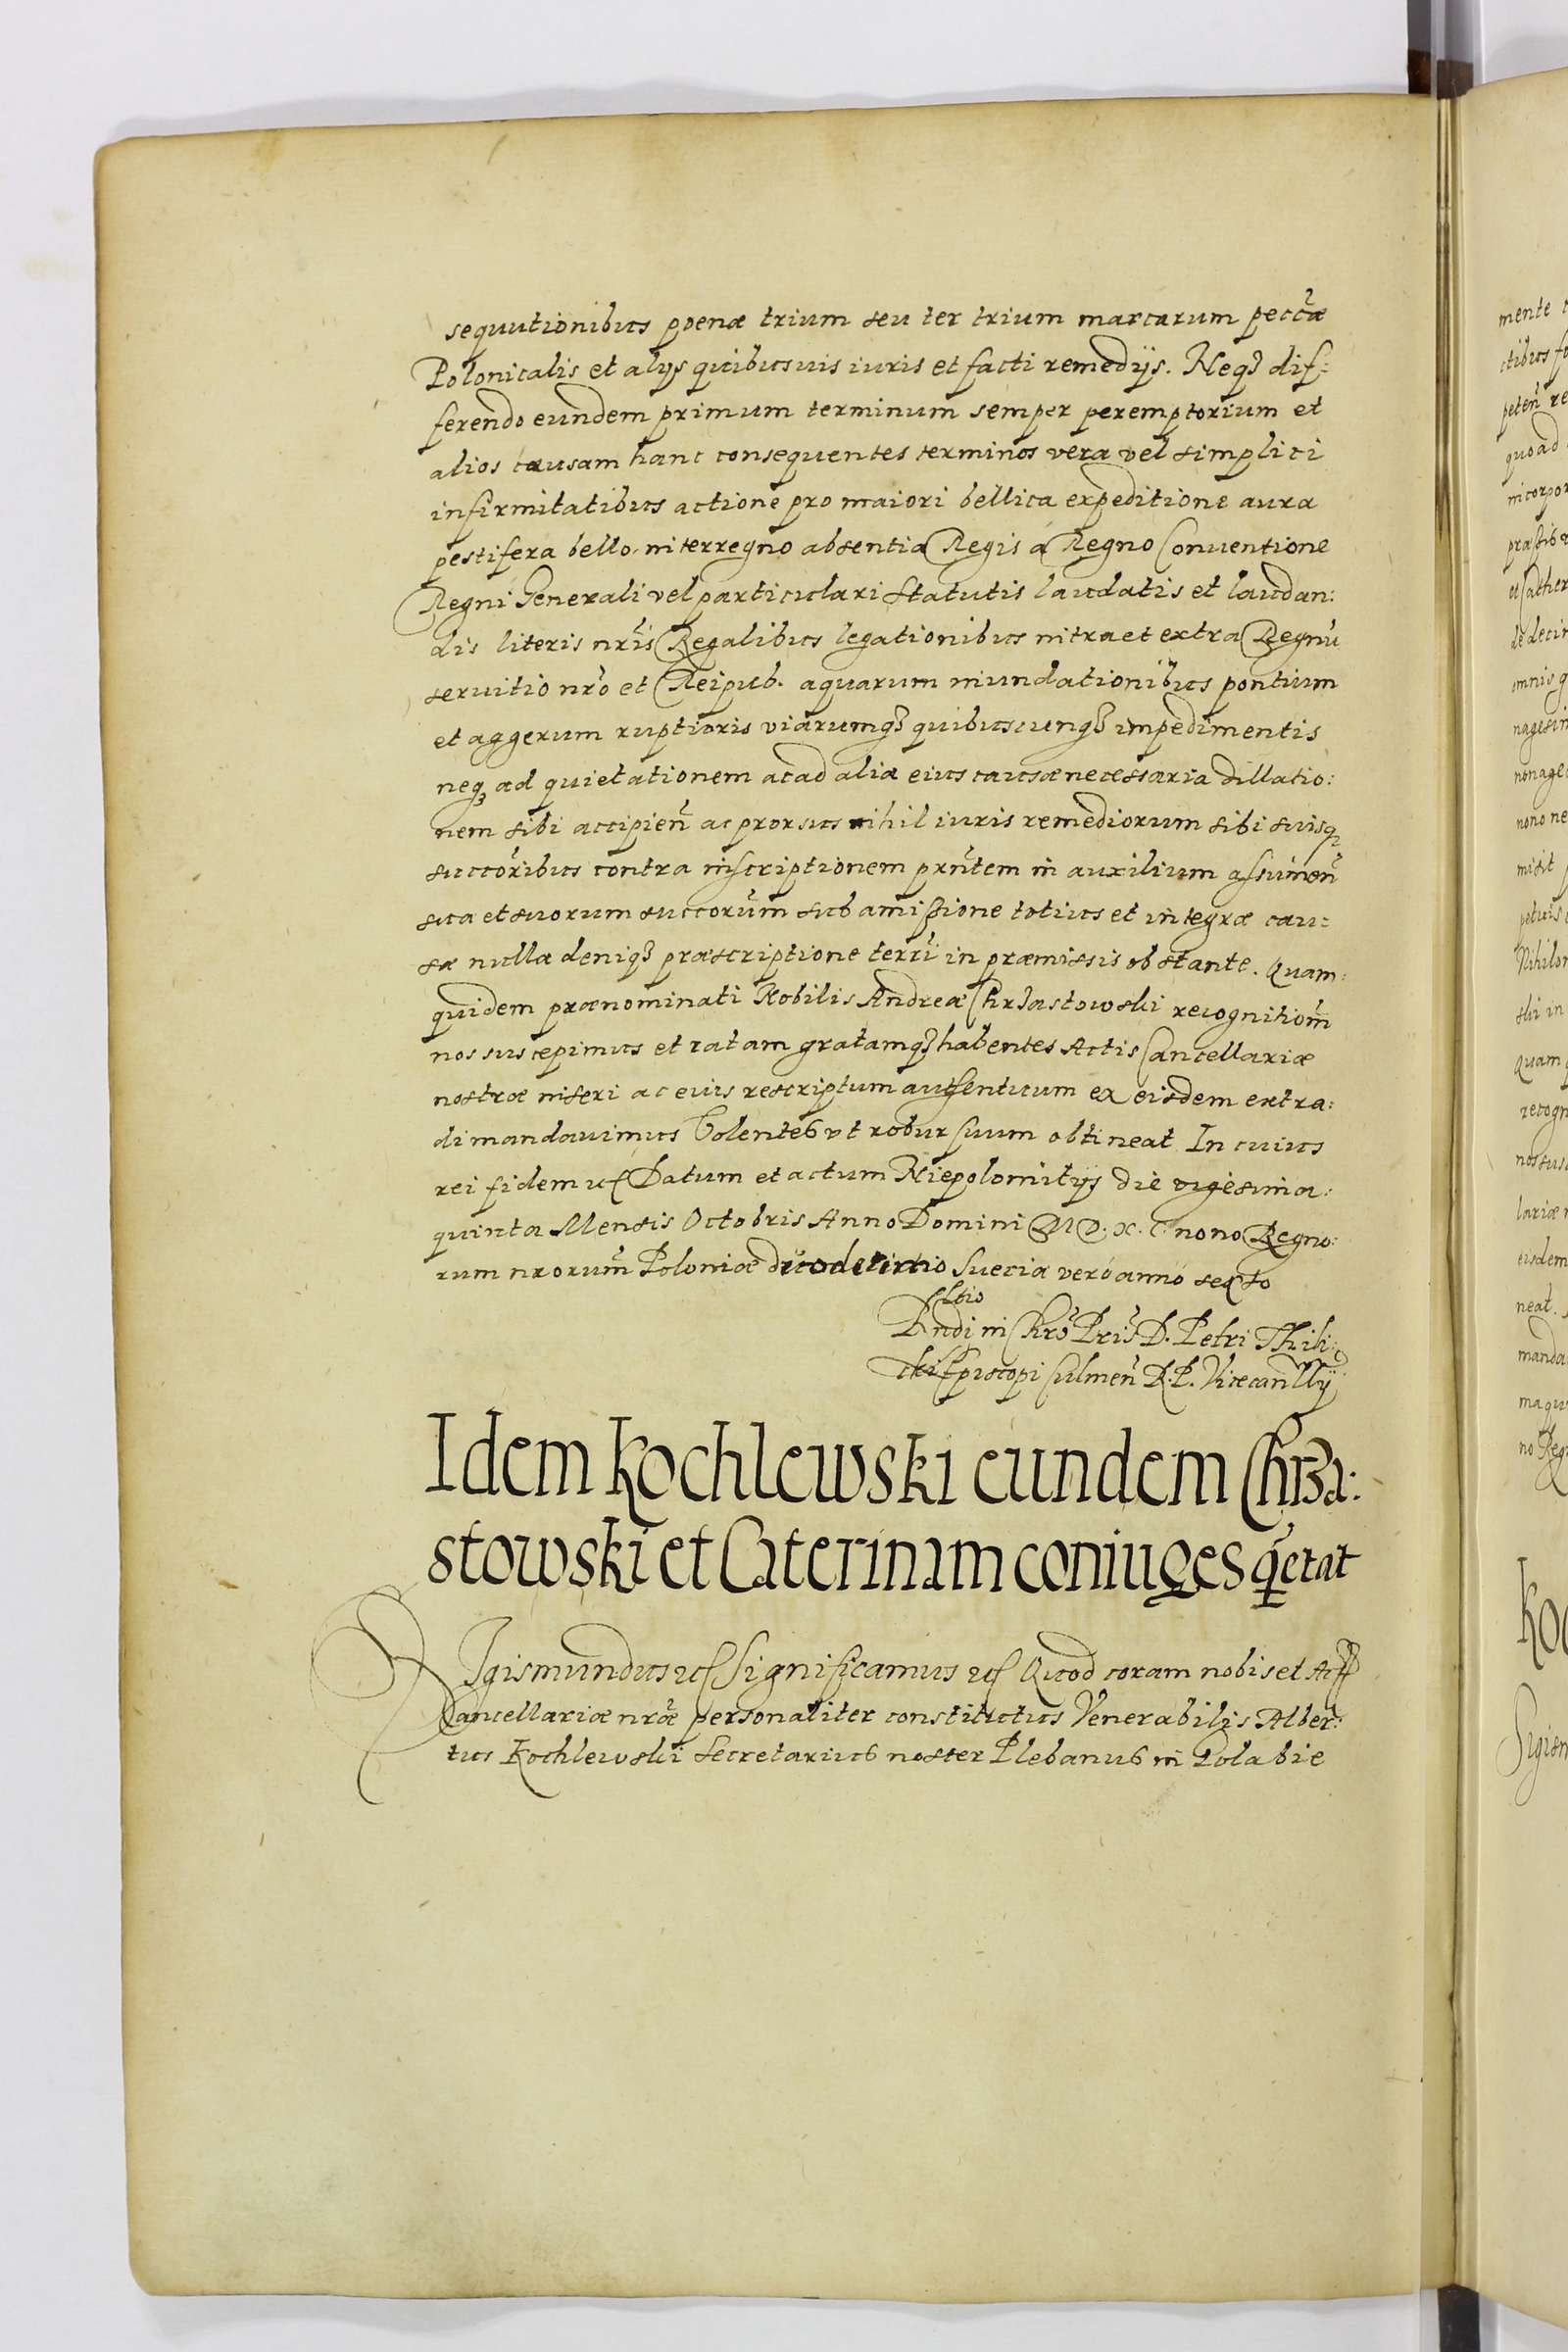 sequutionibus poenæ trium seu ter trium marcarum peccã
Polonicalis et alijs quibusuis iuris et facti remedijs. Neqꝫ dif=
ferendo eundem primum terminum semper peremptorium et
alios causam hanc consequentes terminos vera vel simplici
infirmitatibus actione pro maiori bellica expeditione aura
pestifera bello, interregno absentia Regis á Regno Conuentione
Regni Generali vel particulari statutis laudatis et laudan:
dis literis nr̃is Regalibus legationibus intra et extra Regnũ
seruitio nr̃o et Reipub. aquarum inundationibus pontium
et aggerum ruptioris viarumqꝫ quibuscunqꝫ impedimentis
neqꝫ ad quietationem ac ad alia eius causæ necessaria dillatio:
nem sibi accipieñ ac prorsus nihil iuris remediorum sibi suisqꝫ
succõribus contra inscriptionem prñtem in auxilium assumeñ
sua et suorum succorũm sub amissione totius et integræ cau=
sæ nulla deniqꝫ præscriptione terrĩ in præmissis obstante. Quam:
quidem prænominati Nobilis Andreæ Chrząstowski recognitiom̃
nos suscepimus et ratam gratamqꝫ habentes Actis Cancellariæ
nostræ inseri ac eius rescriptum authenticum ex eisdem extra:
di mandauimus Volentes vt robur suum obtineat In cuius
rei fidem etc Datum et actum Niepolomitijs die vigesima:
quinta Mensis Octobris Anno Domini M D. X. C. nono Regno:
rum nrorum̃ Poloniæ duodecimo Sueciæ veró anno sexto
Rndi in Chrõ Pris̃ D. Petri Tyli:
cki Episcopi Culmeñ R. P. Vicecanllij
Idem Kochlewski eundem Chrzą:
stowski et Caterinam coniuges q̃etat
Sigismundus etc Significamus etc Quod coram nobis et Act
Cancellariæ nrãe personaliter constitutus Venerabilis Alber:
tus Kochlewski Secretarius noster Plebanus in Polabie